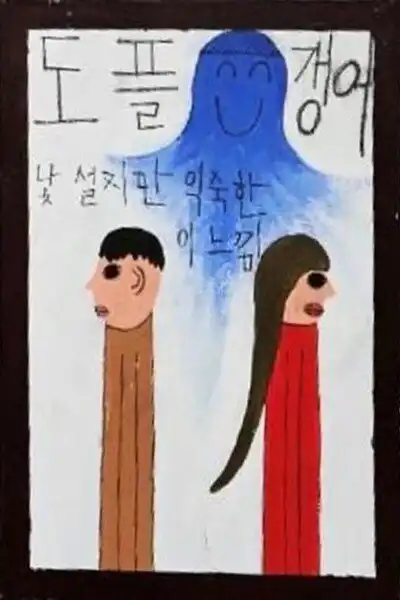 도플갱어
낯설지만 익숙한
이 느낌